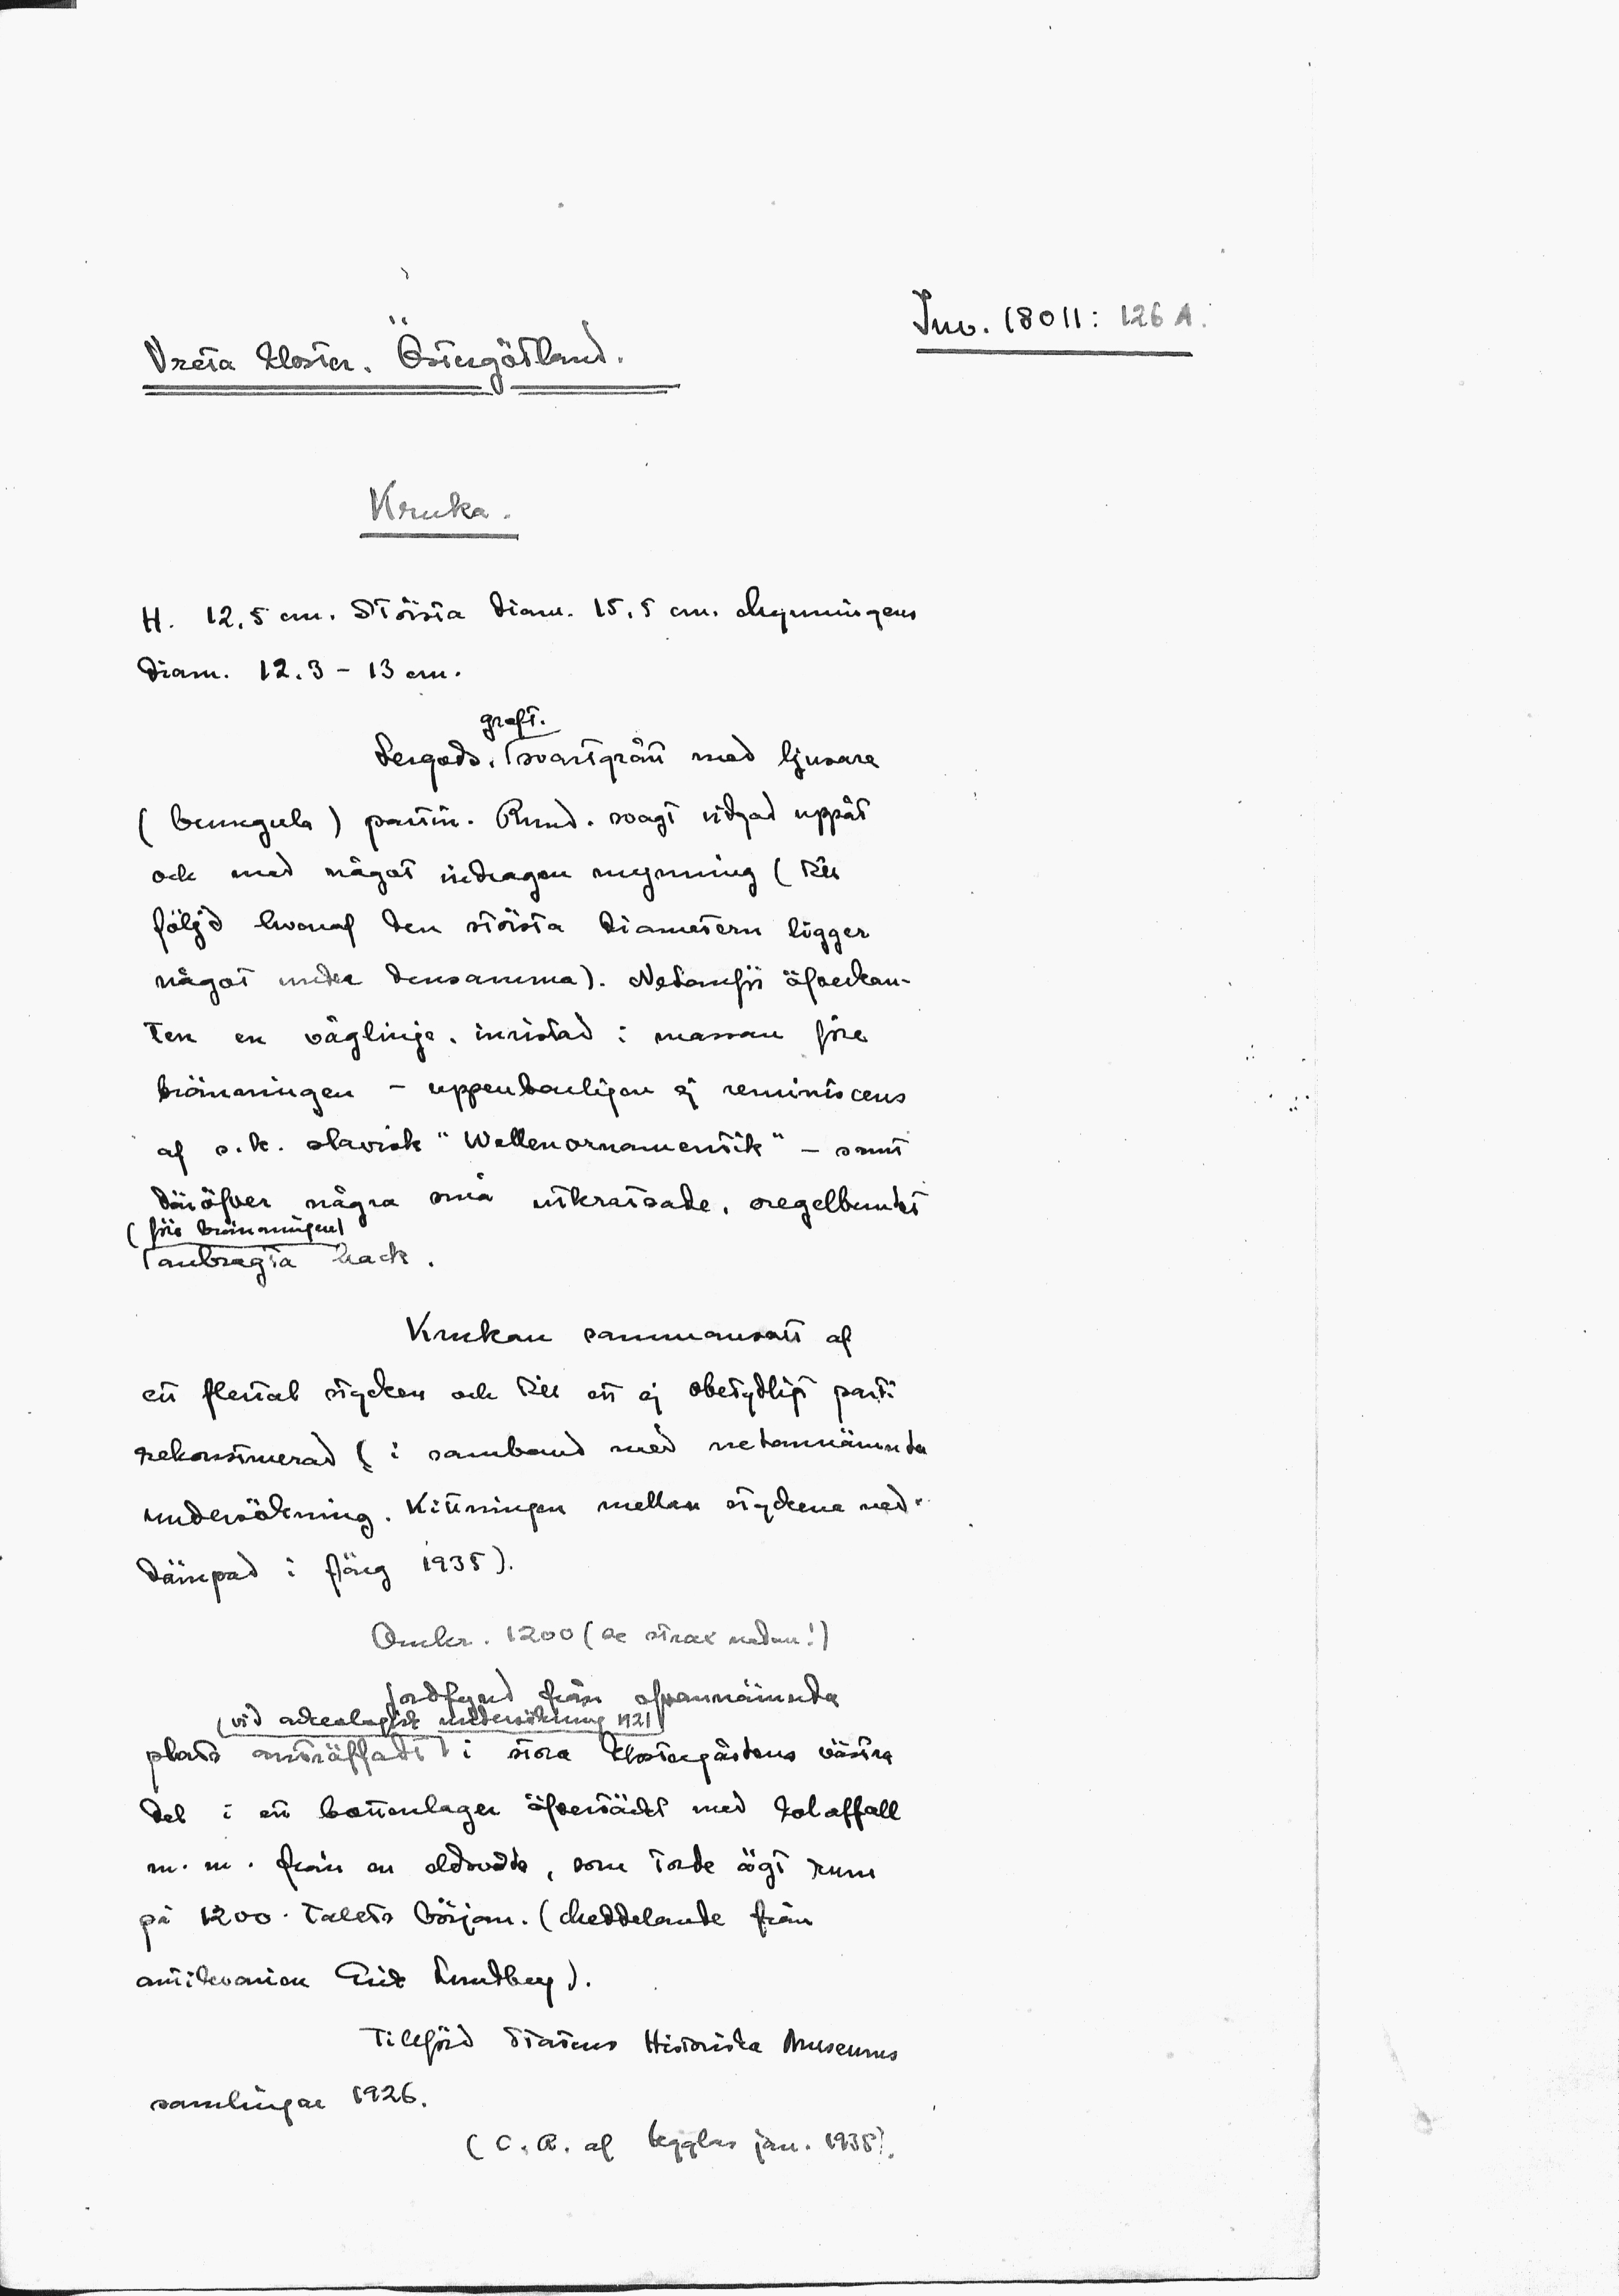 Inv. 18011: 126 A.
Vreta Kloster. Östergötland.
Kruka.
H. 12,5 cm. Största diam. 15,5 cm. Mynningens
diam. 12.3 – 13 cm.
groft.
Lergods, svartgrått med ljusare
(brungula) partier. Rund. svagt vidgad uppåt
och med något indragen mynning (till
följd hvaraf den största diametern ligger
något under densamma). Nedanför öfverkan-
ten en våglinje. inristad i massan före
bränningen – uppenbarligen ej reminiscens
af s.k. slavisk "Wellenornamentik" – samt
däröfver några små utkratsade, oregelbundet
(före bränningen)
anbragta hack.
Krukan sammansatt af
ett flertal stycken och till ett ej obetydligt parti
rekonstruerad (i samband med nedannämnda
undersökning. Kittningen mellan styckena ned-
dämpad i färg 1935).
Omkr. 1200 (se strax nedan!)
Jordfynd från ofvannämnda
(vid arkeologisk undersökning 1921)
plats anträffadt i stora klostergårdens västra
del i ett bottenlager öfvertäckt med kolaffall
m. m. från en eldsvåda, som torde ägt rum
på 1200-talets början. (Meddelande från
antikvarien Erik Lundberg).
Tillförd Statens Historiska Museums
samlingar 1926.
(C. R. af Ugglas jan. 1935).